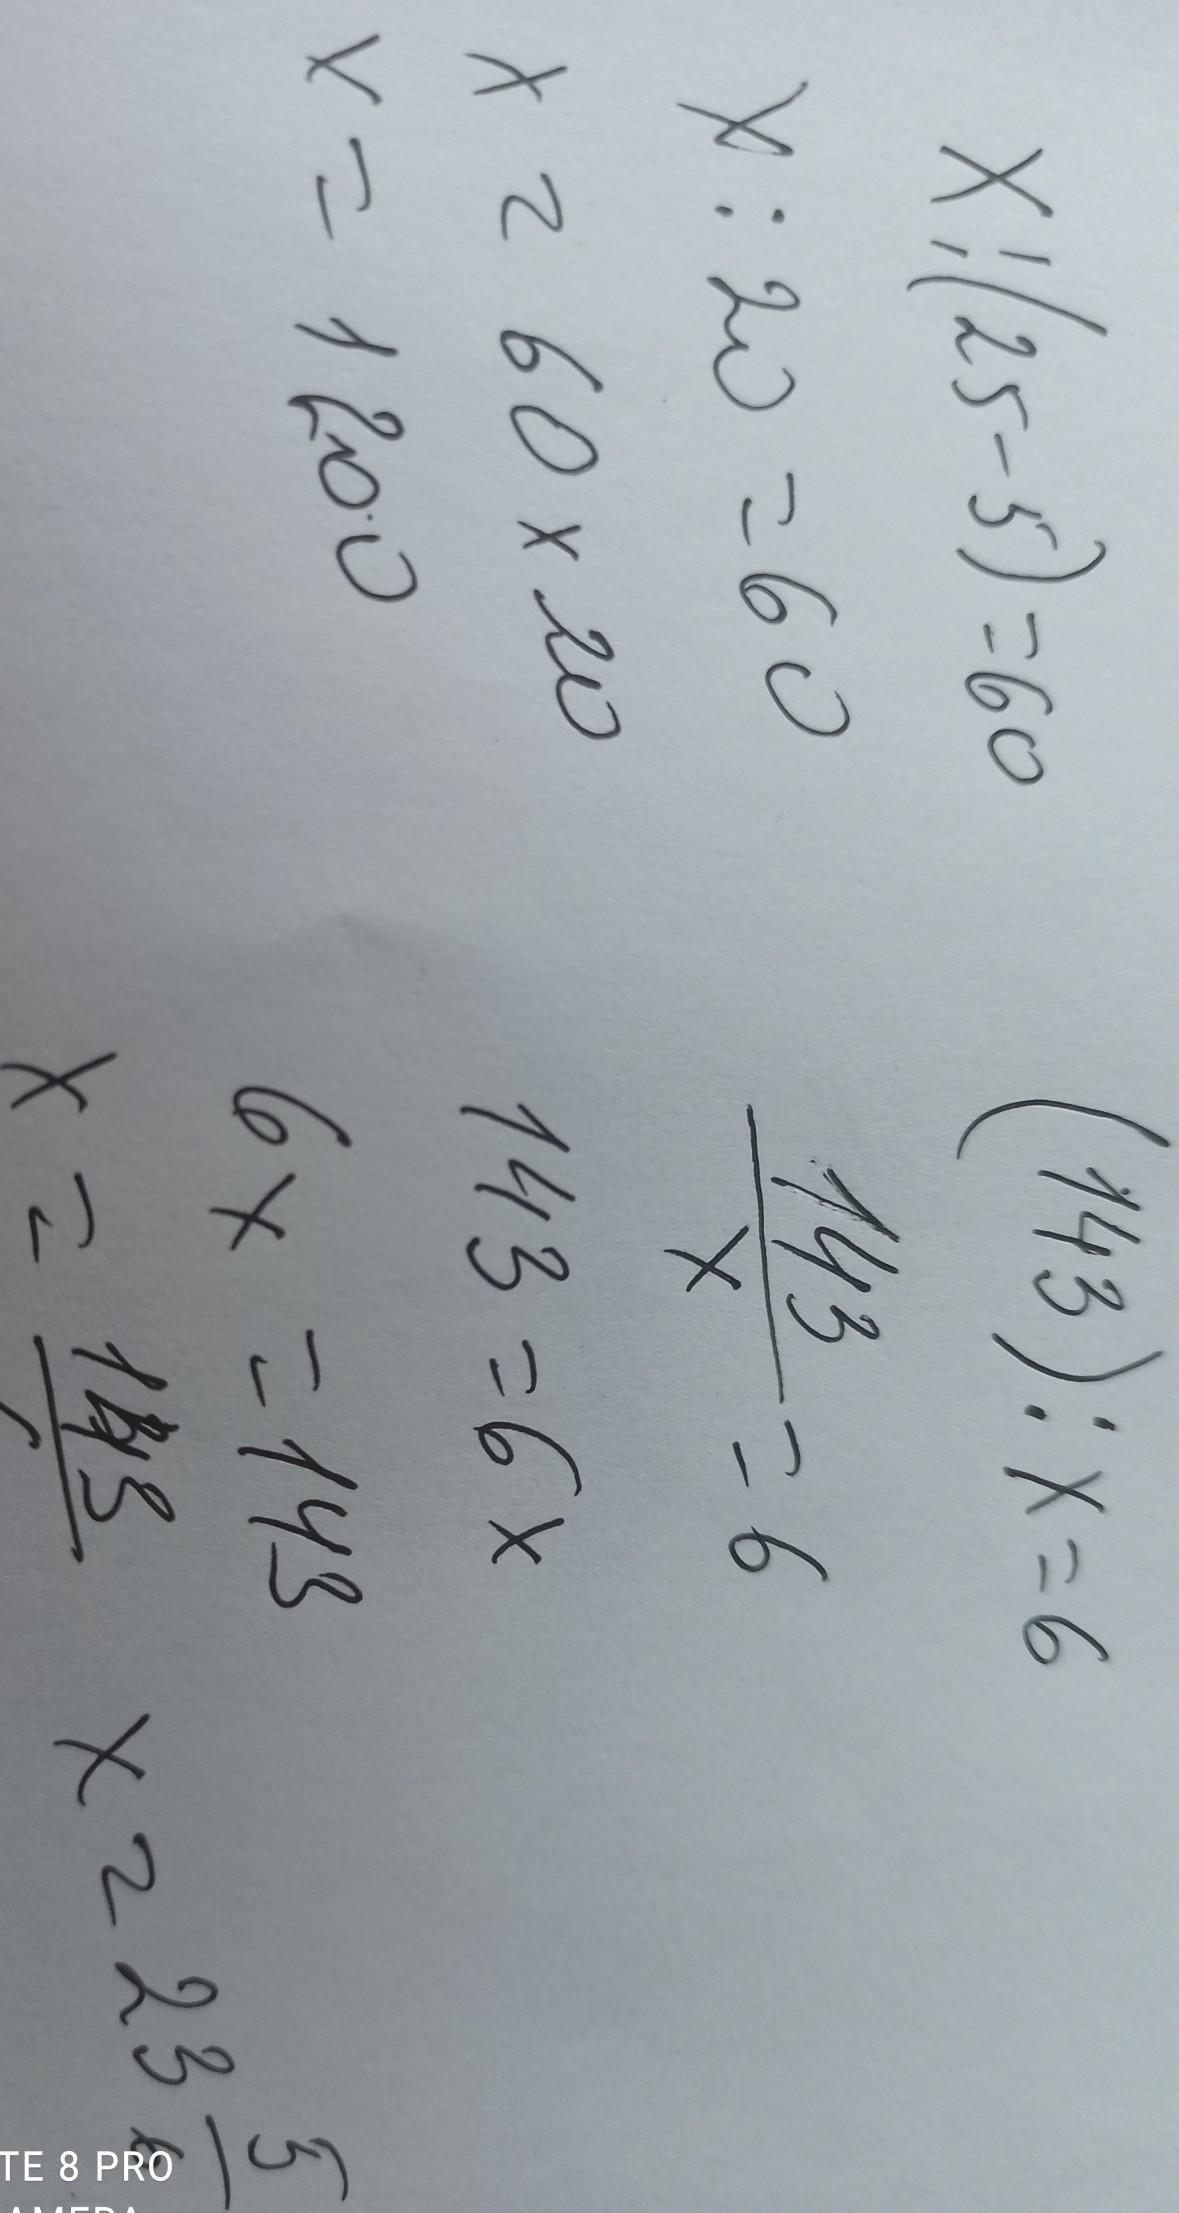 X:(25-5)=60
X:20=60
X=60x20
x=1200
(143):x=6
143
x
=6
143=6x
6x=143
x=143
x=23 5
6
TE 8 PRO